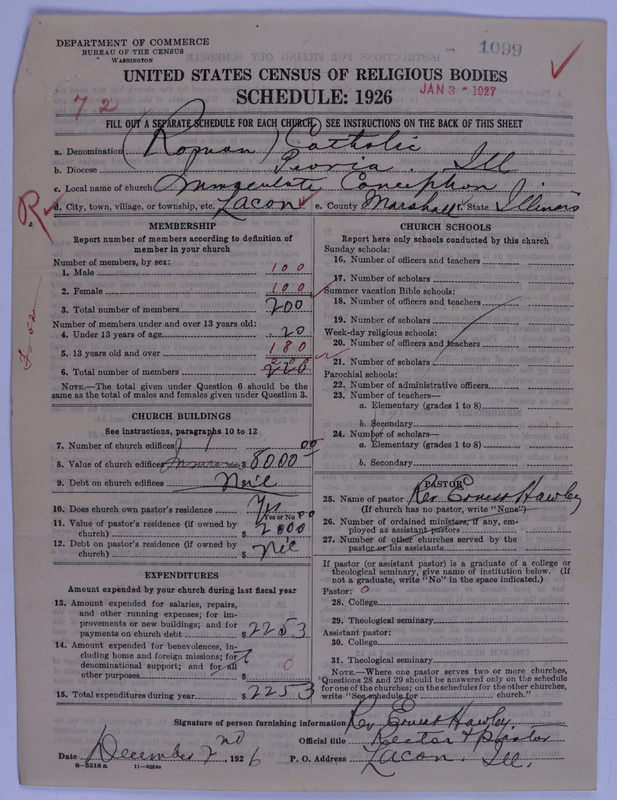 DEPARTMENT OF COMMERCE
BUREAU OF THE CENSUS
WASHINGTON
1099
UNITED STATES CENSUS OF RELIGIOUS BODIES
JAN 3 - 1927
SCHEDULE: 1926
7 2
FILL OUT A SEPARATE SCHEDULE FOR EACH CHURCH. SEE INSTRUCTIONS ON THE BACK OF THIS SHEET
a. Denomination (Roman) Catholic
b. Diocese Peoria. Ill
c. Local name of church Immaculate Conception
d. City, town, village, or township, etc. Lacon e. County Marshall f. State Illinois
R
MEMBERSHIP
Report number of members according to definition of
member in your church
Number of members, by sex:
1. Male 100
2. Female 100
3. Total number of members 200
Number of members under and over 13 years old:
4. Under 13 years of age 20
5. 13 years old and over 180
200
6. Total number of members 220
NOTE.—The total given under Question 6 should be the
same as the total of males and females given under Question 3.
CHURCH BUILDINGS
See instructions, paragraphs 10 to 12
7. Number of church edifices 1
8. Value of church edifices Insurance $ 8000 00
9. Debt on church edifices Nil
10. Does church own pastor's residence Yes
Yes or No
11. Value of pastor's residence (if owned by
church) $ 2000 00
12. Debt on pastor's residence (if owned by
church) $ Nil
EXPENDITURES
Amount expended by your church during last fiscal year
13. Amount expended for salaries, repairs,
and other running expenses; for im-
provements or new buildings; and for
payments on church debt $ 2253
14. Amount expended for benevolences, in-
cluding home and foreign missions; for
denominational support; and for all
other purposes $ 0
15. Total expenditures during year $ 2253
CHURCH SCHOOLS
Report here only schools conducted by this church
Sunday schools:
16. Number of officers and teachers
17. Number of scholars
Summer vacation Bible schools:
18. Number of officers and teachers
19. Number of scholars
Week-day religious schools:
20. Number of officers and teachers
21. Number of scholars
Parochial schools:
22. Number of administrative officers
23. Number of teachers—
a. Elementary (grades 1 to 8)
b. Secondary
24. Number of scholars—
a. Elementary (grades 1 to 8)
b. Secondary
PASTOR
25. Name of pastor Rev Ernest Hawley
(If church has no pastor, write "None")
26. Number of ordained ministers, if any, em-
ployed as assistant pastors
27. Number of other churches served by the
pastor or his assistants
If pastor (or assistant pastor) is a graduate of a college or
theological seminary, give name of institution below. (If
not a graduate, write "No" in the space indicated.)
Pastor: 0
28. College
29. Theological seminary
Assistant pastor:
30. College
31. Theological seminary
NOTE.—Where one pastor serves two or more churches,
Questions 28 and 29 should be answered only on the schedule
for one of the churches; on the schedules for the other churches,
write "See schedule for church."
Signature of person furnishing information Rev Ernest Hawley
Official title Rector & Pastor
Date December 2nd, 1926 P. O. Address Lacon. Ill.
8—5518a 11—9058a